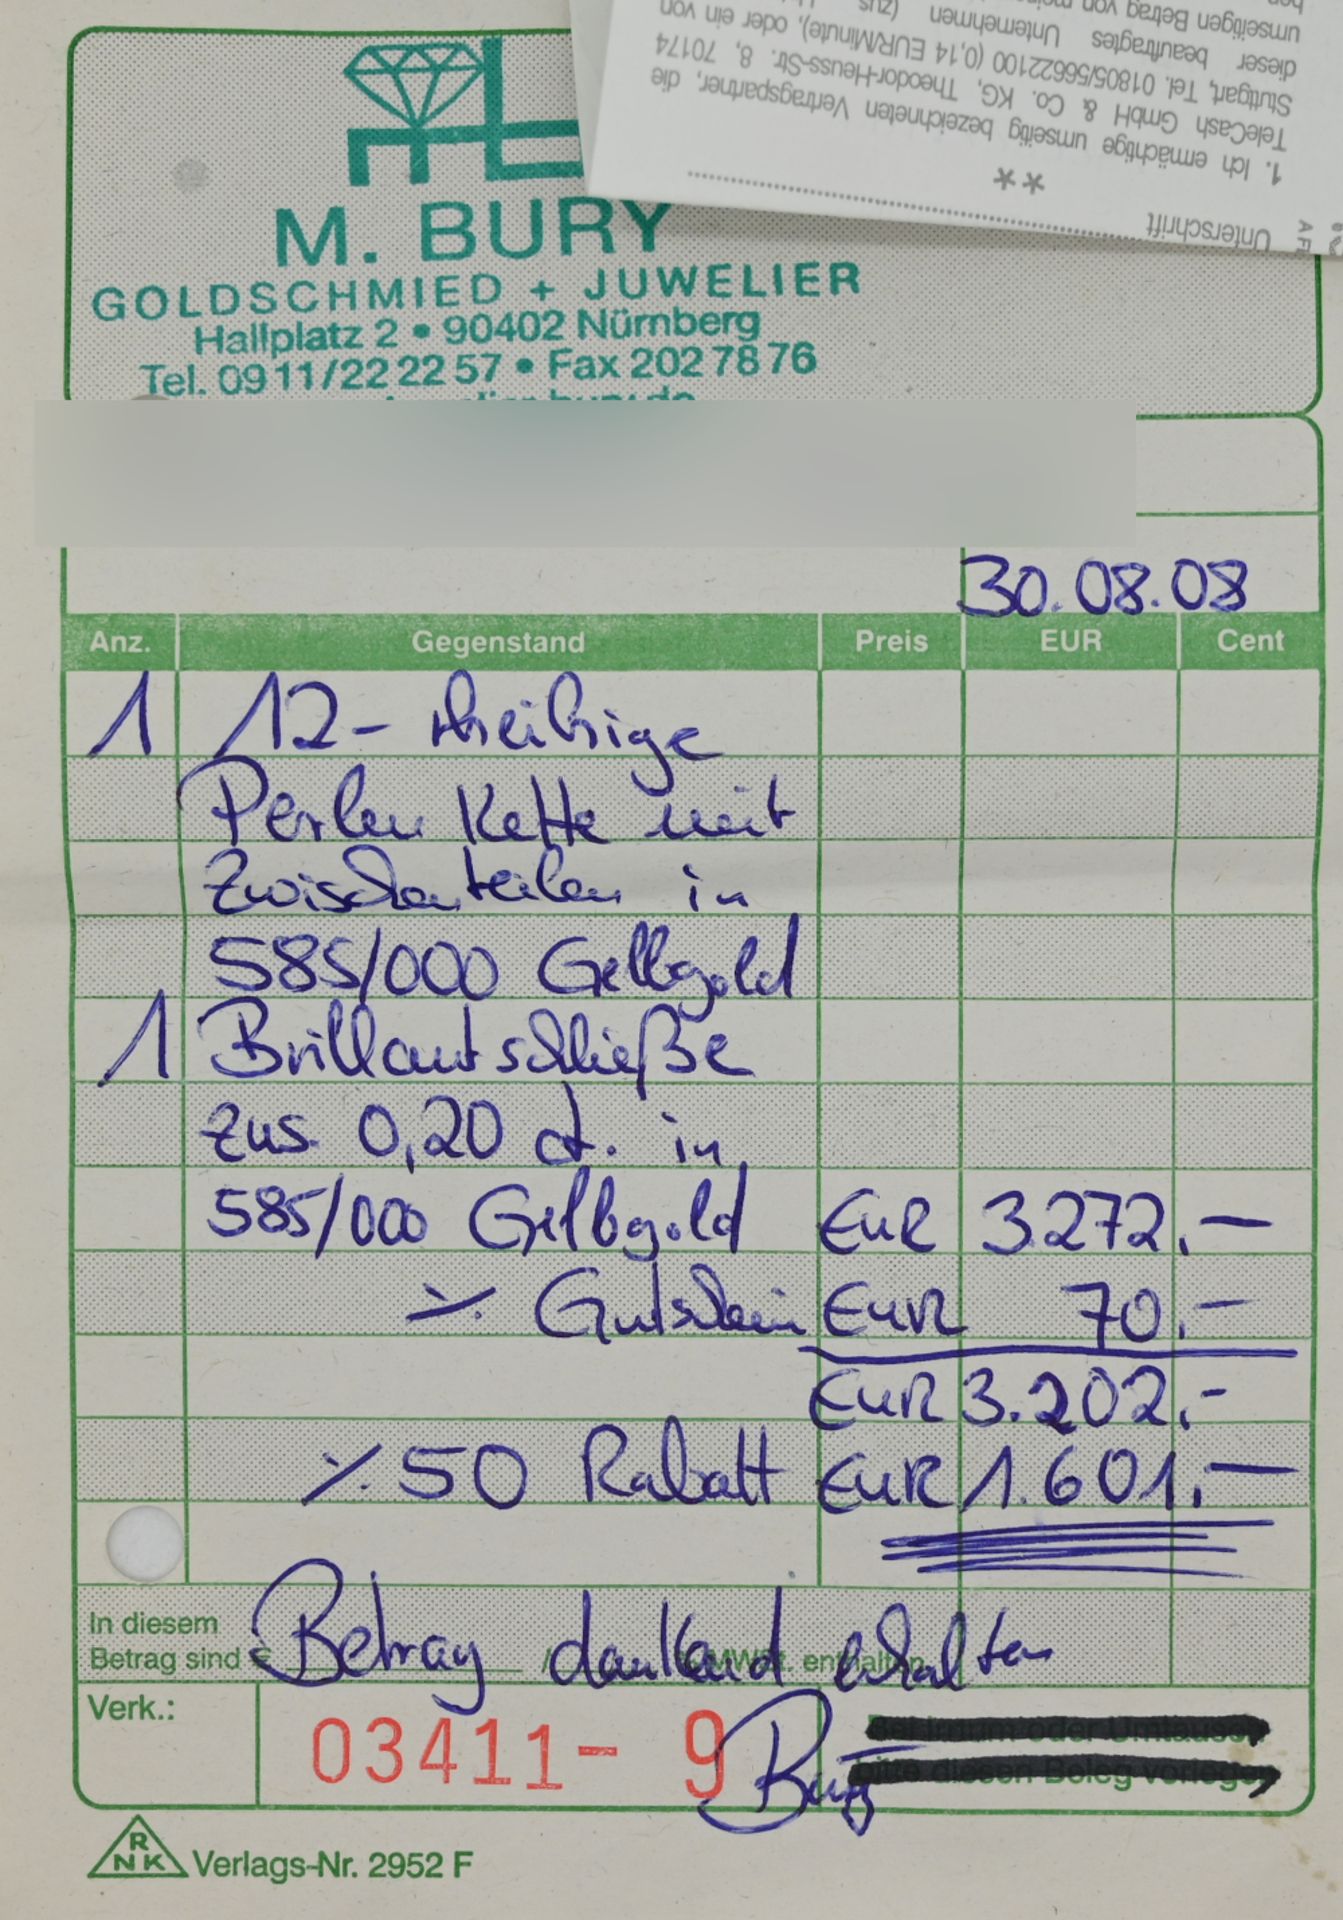 M. BURY
GOLDSCHMIED + JUWELIER
Hallplatz 2 • 90402 Nürnberg
Tel. 09 11/22 22 57 • Fax 202 78 76
1. Ich ermächtige umseitig bezeichneten Vertragspartner, die
TeleCash GmbH & Co. KG, Theodor-Heuss-Str. 8, 70174
Stuttgart, Tel. 01805/5622100 (0,14 EUR/Minute), oder ein von
dieser beauftragtes Unternehmen (zus
umseitigen Betrag von
**
Unterschrift
30.08.08
Anz. Gegenstand Preis EUR Cent
1 12-reihige
Perlen Kette mit
Zwischenteilen in
585/000 Gelbgold
1 Brillantschließe
zus. 0,20 ct. in
585/000 Gelbgold EUR 3272.—
./. Gutschein EUR 70.—
EUR 3.202.-
./. 50 Rabatt EUR 1.601.—
In diesem
Betrag sind € / MWSt. enthalten
Betrag dankend erhalten
Verk.: 03411- 9 Bury
Bei Irrtum oder Umtausch
bitte diesen Beleg vorlegen
RNK Verlags-Nr. 2952 F